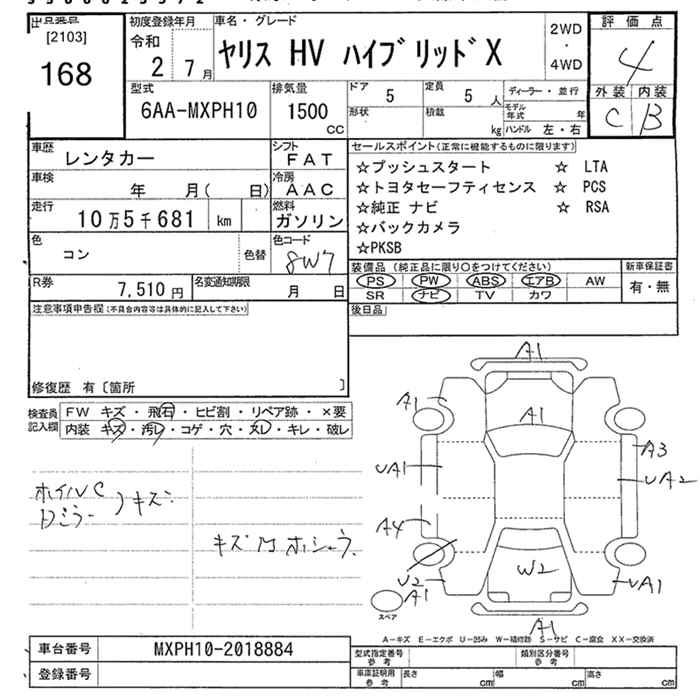 出品番号
[2103]
168
初度登録年月
令和
2 7月
車名・グレード
ヤリス HV ハイブリッドX
2WD
・
4WD
評価点
4
外装 内装
C B
型式
6AA-MXPH10
排気量
1500
cc
ドア 5
形状
定員 5 人
積載 kg
ディーラー・並行
モデル年式 年
ハンドル 左・右
車歴 レンタカー
シフト FAT
車検 年 月( 日)
冷房 AAC
走行 10万5千681 km
燃料 ガソリン
色 コン 色替
色コード 8W7
R券 7,510 円
名変通知期限 月 日
セールスポイント(正常に機能するものに限ります)
☆プッシュスタート ☆ LTA
☆トヨタセーフティセンス ☆ PCS
☆純正 ナビ ☆ RSA
☆バックカメラ
☆PKSB
装備品 (純正品に限り○をつけてください)
PS PW ABS エアB AW
SR ナビ TV カワ
新車保証書
有・無
後日品
注意事項申告欄(不具合内容等は具体的に記入して下さい)
修復歴 有〔箇所 〕
検査員記入欄
FW キズ・飛石・ヒビ割・リペア跡・×要
内装 キズ・汚レ・コゲ・穴・スレ・キレ・破レ
ホイルC
ドミラー )キズ
キズ
A1
A1
A1
A3
UA1
UA2
A4
U2
A1
W2
UA1
A1
スペア
A-キズ E-エクボ U-凹み W-補修跡 S-サビ C-腐食 XX-交換済
車台番号 MXPH10-2018884
登録番号
型式指定番号 参考
類別区分番号 参考
車庫証明用 参考
長さ cm 幅 cm 高さ cm